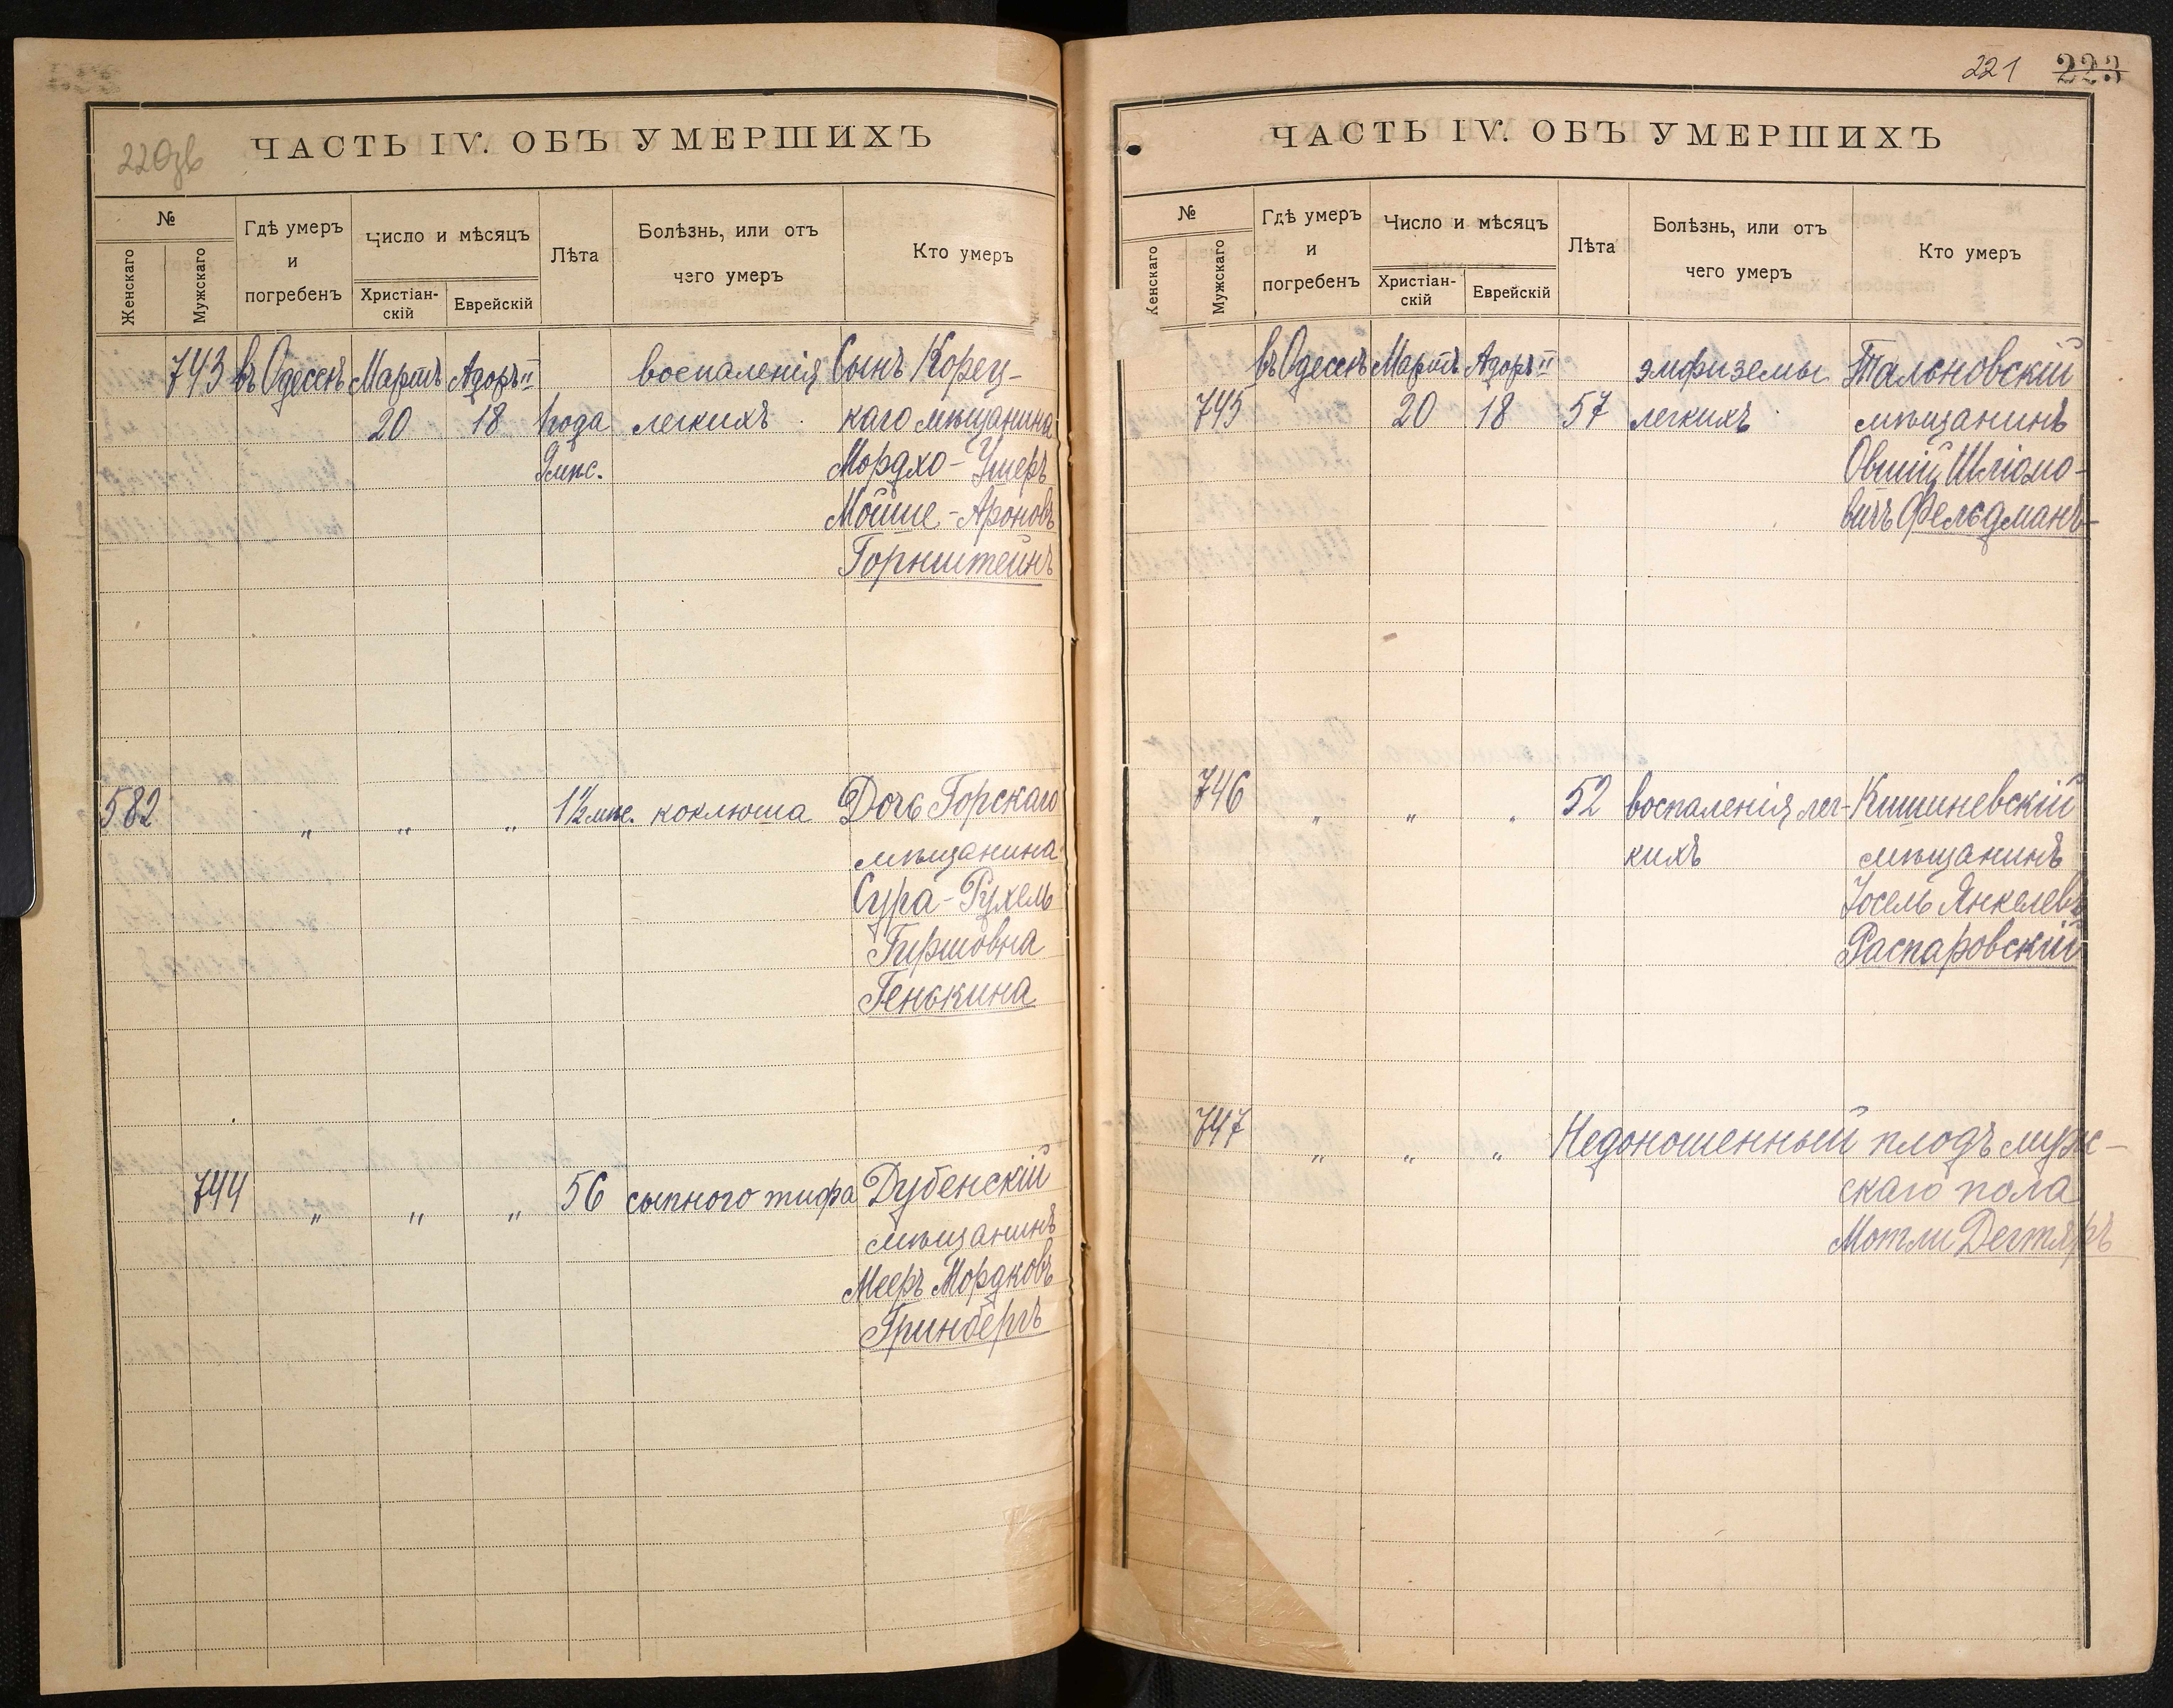 220 зв
ЧАСТЬ IV. ОБЪ УМЕРШИХЪ
№
Женскаго
Мужскаго
Гдѣ умеръ
и
погребенъ
Число и мѣсяцъ
Христіан-
скій
Еврейскій
Лѣта
Болѣзнь, или отъ
чего умеръ
Кто умеръ
743 въ Одессѣ Мартъ Адоръ II воспаленія Сынъ Корец-
20 18 1 года легкихъ каго мѣщанина
9 мѣс. Мордхо-Ушеръ
Мойше-Ароновъ
Горнштейнъ
582 " " " 1½ мѣс. коклюша Дочь Горскаго
мѣщанина
Сура-Рухель
Гиршовна
Генькина
744 " " " 56 сыпного тифа Дубенскій
мѣщанинъ
Мееръ Мордковъ
Гринбергъ
221 223
ЧАСТЬ IV. ОБЪ УМЕРШИХЪ
№
Женскаго
Мужскаго
Гдѣ умеръ
и
погребенъ
Число и мѣсяцъ
Христіан-
скій
Еврейскій
Лѣта
Болѣзнь, или отъ
чего умеръ
Кто умеръ
въ Одессѣ Мартъ Адоръ II эмфиземы Тальновскій
745 20 18 57 легкихъ мѣщанинъ
Овшій Шліомо-
вичъ Фельдманъ
746 " " " 52 воспаленія лег- Кишиневскій
кихъ мѣщанинъ
Іосель Янкелевъ
Распаровскій
747 " " " Недоношенный плодъ муж-
скаго пола
Мотли Дегтяръ